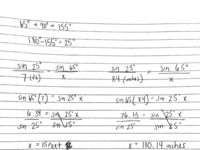 65° + 90° = 155°
180° - 155° = 25°
sin 25° / 7 (ft) = sin 65° / x
sin 25° / 84 (inches) = sin 65° / x
sin 65° (7) = sin 25° x
sin 65 (84) = sin 25° x
6.34 / sin 25° = sin 25° x / sin 25°
76.13 / sin 25° = sin 25° x / sin 25°
x = 15 feet
x = 180.14 inches